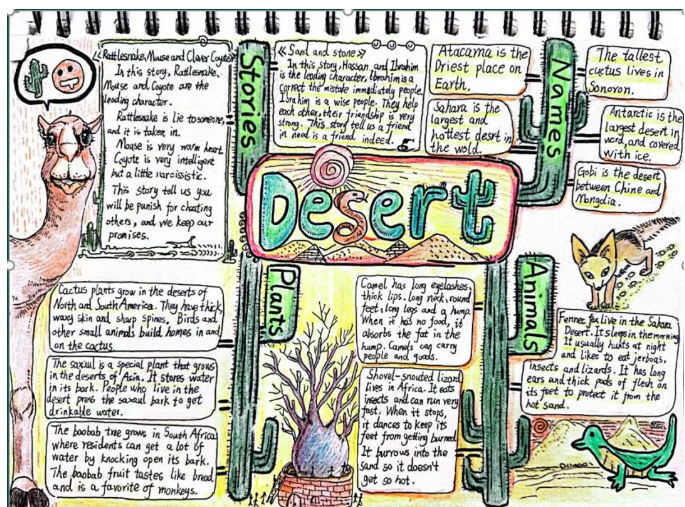 Desert
Stories
《Rattlesnake, Mouse and Claver Coyote》
In this story, Rattlesnake,
Mouse and Coyote are the
leading character.
Rattlesnake is lie to someone,
and it is taken in.
Mouse is very warm heart.
Coyote is very intelligent
but a little narcissistic.
This story tell us you
will be punish for cheating
others, and we keep our
promises.
《Sand and stone》
In this story, Hassan and Ibrahim
is the leading character, Ibrahim is a
correct the mistake immediately people.
Ibrahim is a wise people. They help
each other, their friendship is very
strong. This story tell us a friend
in need is a friend indeed.
Names
Atacama is the
Driest place on
Earth.
Sahara is the
largest and
hottest desrt in
the wold.
The tallest
cuctus lives in
Sonoron.
Antarctic is the
largest desert in
word, and covered
with ice.
Gobi is the desert
between Chine and
Mongdia.
Plants
Cactus plants grow in the deserts of
North and South America. They have thick
waxy skin and sharp spines, Birds and
other small animals build homes in and
on the cactus.
The saxaul is a special plant that grows
in the deserts of Asia. It stores water
in its bark. People who live in the
desert press the saxaul bark to get
drinkable water.
The baobab tree grows in South Africa
where residents can get a lot of
water by knocking open its bark.
The baobab fruit tastes like bread
and is a favorite of monkeys.
Animals
Camel has long eyelashes,
thick lips. long neck, round
feet, long legs and a hump.
When it has no food, it
absorbs the fat in the
hump. Camels can carry
people and goods.
Shovel-snouted lizard
lives in Africa. It eats
insects and can run very
fast. When it stops,
it dances to keep its
feet from getting burned.
It burrows into the
sand so it doesn't
get so hot.
Fennec fox live in the Sahara
Desert. It sleeps in the morning.
It usually hunts at night
and likes to eat jerboas,
insects and lizards. It has long
ears and thick pads of flesh on
its feet to protect it from the
hot sand.